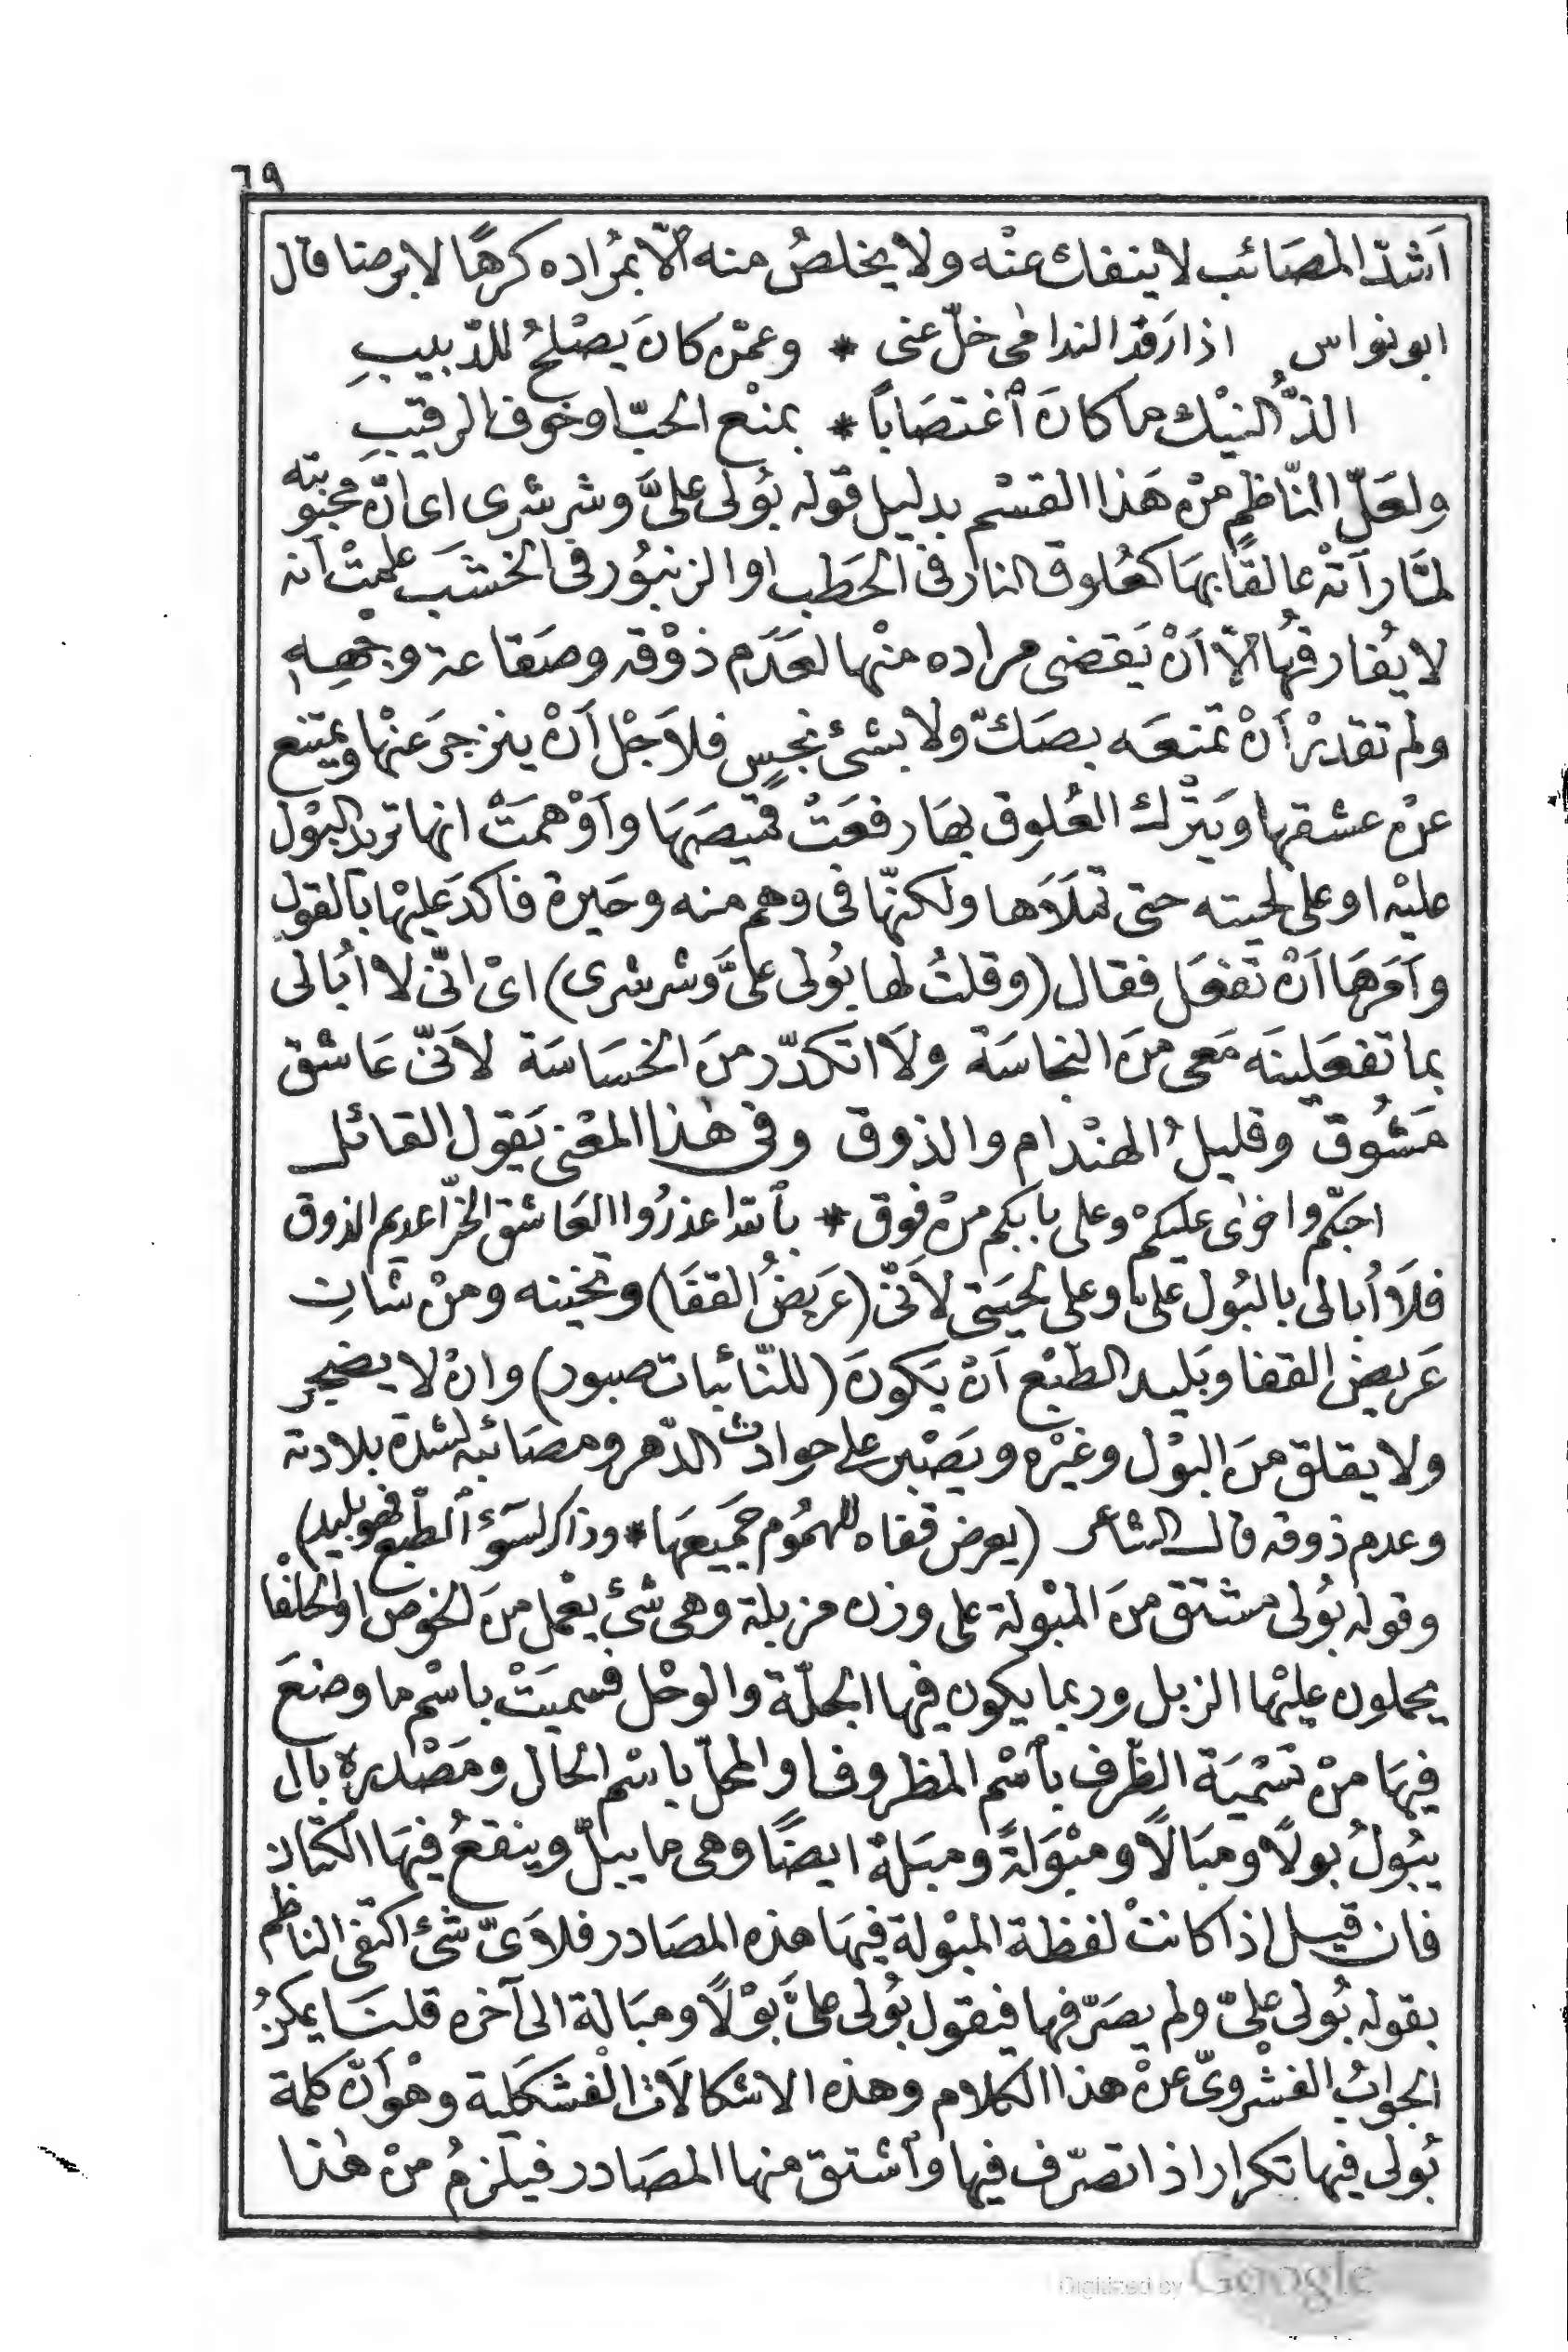 ٦٩
اَشدّ المصَائب لا ينفك عنْه ولا يخلصُ منه اِلّا بمُراده كرهًا لا برضا قال
ابو نواس اذا رَقد الندامٰى خلّ عنى * وعمّن كانَ يصْلحُ للدّبيبِ
الذُّ النيْك ما كانَ اَغتصَاباً * بمنْع الحبّ او خوف الرقيبِ
ولعَلّ النّاظم منْ هَذا القسْم بدليل قوله بُولى علىَّ وشرشرى اى انّ محبوبته
لمَّا رَاَتْه عالقًا بهَا كعُلوق النار فى الحَطب او الزنبُور فى الخشبَ علمتْ انه
لا يُفارقُها اِلّا اَنْ يَقضى مراده منْها لعَدَم ذوْقه وصَقاعة وجْههِ
ولم تقدرْ اَنْ تمنعَه بصَكّ ولا بشئ نجسٍ فلاَجْل اَنْ ينزجرَ عنْها ويمتنع
عنْ عشقها ويَتْرك العُلوق بهَا رفعَتْ قميصَهَا واَوْهمَتْ انها تريد البوْل
عليْه او على لحيته حتى تملَاَها ولكنّها فى وهم منه وحَيرة فاكدَ عليْها بالقول
واَمَرهَا اَنْ تفعَل فقال (وقلتُ لها بُولى علىَّ وشرشرى) اىْ انّى لا اُبَالى
بما تفعَلينَه مَعى منَ النجاسَة ولَا اتكدّر منَ الخسَاسَة لاَنّى عَاشق
مَشُوق وقليلُ الهنْدام والذوق وفى هٰذا المعْنى يَقول القائل
احبّكم واخرٰى عليكمْ وعلى بابكم منْ فوق * بالله اعذرُوا العَاشق الخرّا عديم الذوق
فلَا اُبالى بالبُول علىّ او على لحيَتى لاَنّى (عَريضُ القفَا) وثخينه ومنْ شَانِ
عَريض القفا وبَليد الطبْع اَنْ يَكونَ (للنّائبات صبور) وانْ لا يضجر
ولا يقلق منَ البوْل وغيْره ويَصْبر على حوادث الدّهر ومصَائبه لشدّة بلادته
وعدم ذوقه قال الشاعر (يعرض قفاه للهمُوم جَميعهَا * وذاكر لسَوُء الطبْع فهو بليد)
وقوله بُولى مشتق منَ المبْولة على وزن مزبلة وهى شئ يعْمل منَ الخوص او الحلفَا
يحملون عليْها الزبل وربما يكون فيها الجلّة والوحْل فسميَتْ باسْم ما وضعَ
فيهَا منْ تسْميَة الظّرف باَسْم المظروف او المحلّ باسْم الحَال ومَصْدره بال
يبُولُ بولًا ومبَالًا ومبْوَلةً ومبَلةً ايضًا وهى ما يبلّ وينقعُ فيهَا الكتّان
فان قيل اذا كانتْ لفظة المبْولة فيهَا هذه المصَادر فلاَىّ شئ اكتفى الناظم
بقوله بُولى علىّ ولم يصَرّفها فيقول بُولى علىَّ بَوْلًا ومبَالة الى آخره قلنَا يمكنُ
الجوابُ الفشْروىّ عنْ هذا الكلام وهذه الاشكالَات الفشكَلية وهْو اَنّ كلمة
بُولى فيها تكرار اذا تصَرّف فيها واَشتق منها المصَادر فيلزمُ منْ هٰذا
Digitized by Google